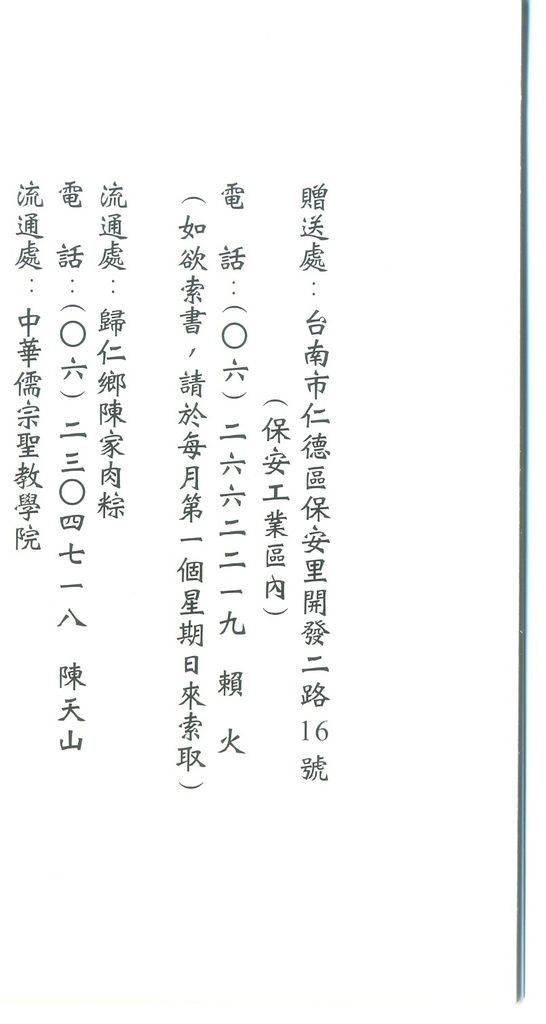 贈送處：台南市仁德區保安里開發二路16號
（保安工業區內）
電　話：（〇六）二六六二二一九　賴　火
（如欲索書，請於每月第一個星期日來索取）
流通處：歸仁鄉陳家肉粽
電　話：（〇六）二三〇四七一八　陳天山
流通處：中華儒宗聖教學院